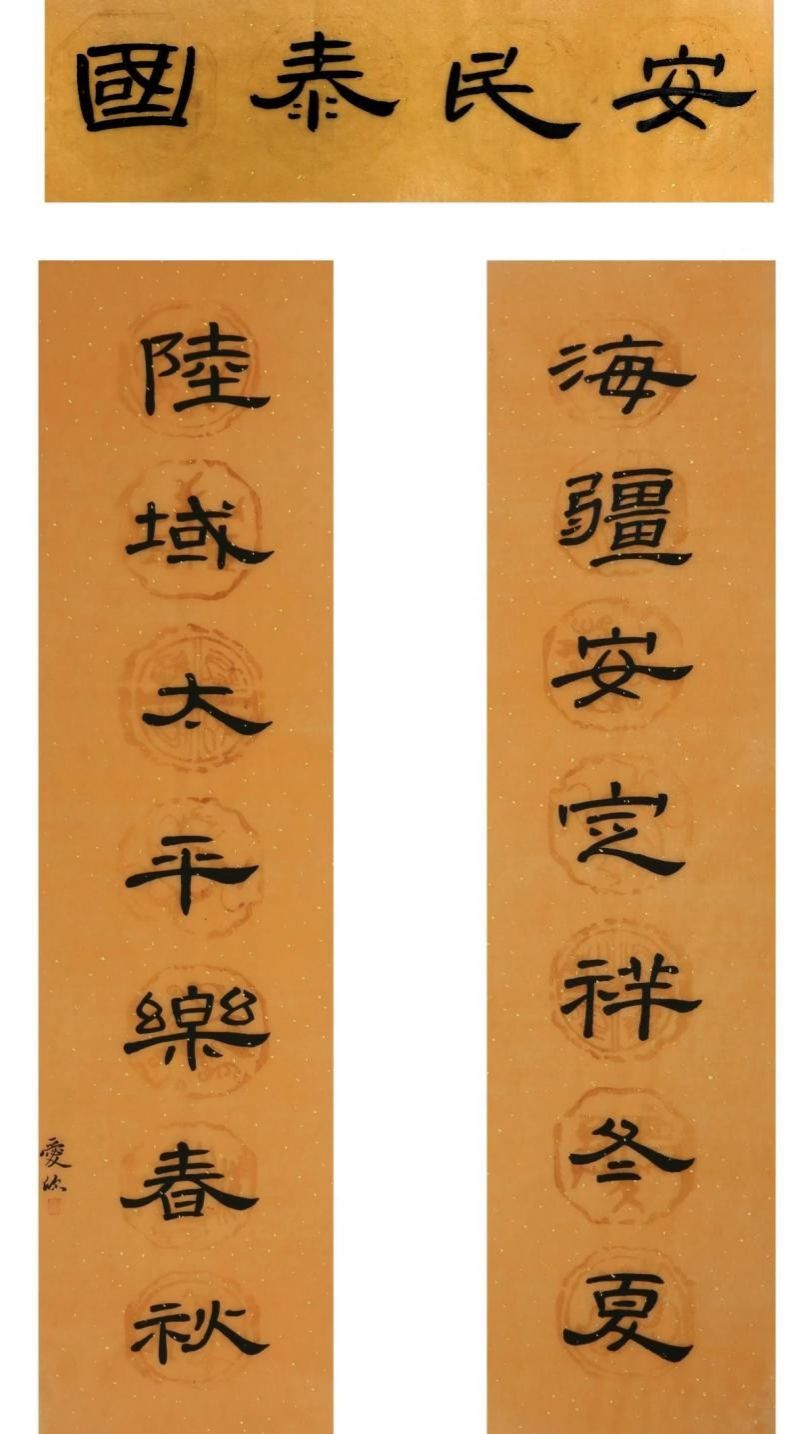 國泰民安
海疆安定祥冬夏
陸域太平樂春秋
愛